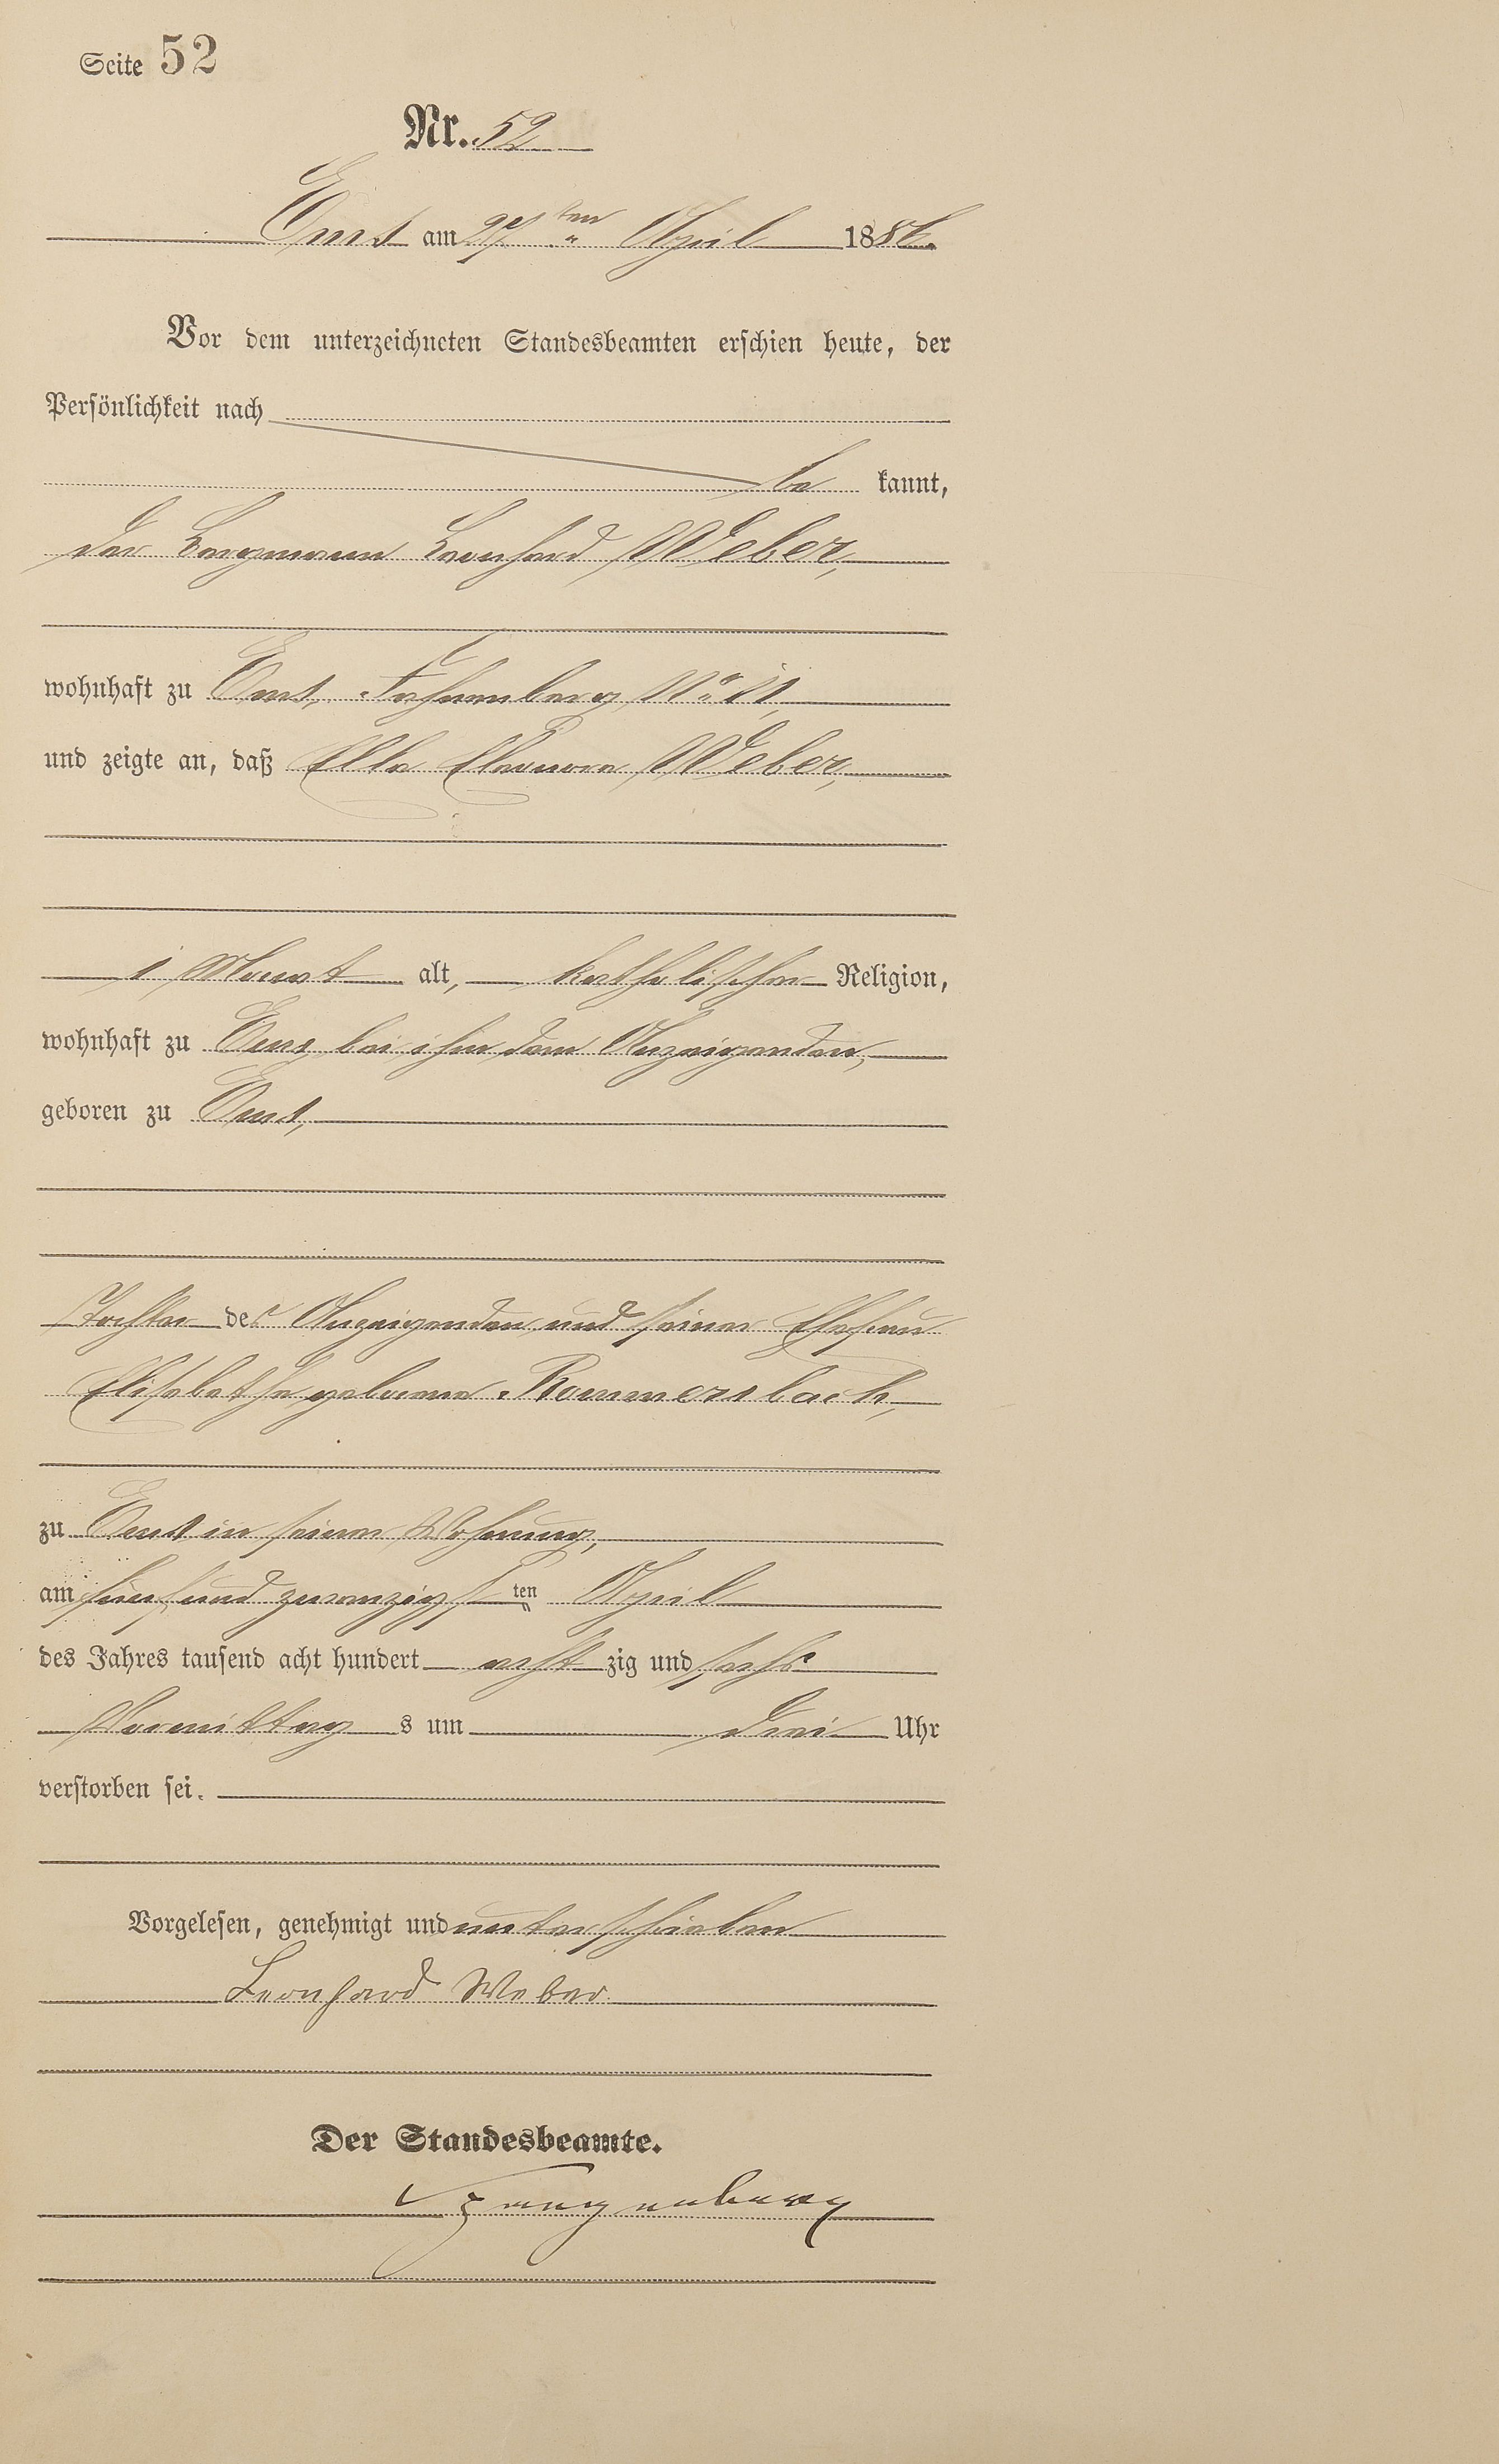 Seite 52
Nr. 52
Ems am 27ten April 1886.
Vor dem unterzeichneten Standesbeamten erschien heute, der
Persönlichkeit nach
be kannt,
der Bergmann Leonhard Weber,
wohnhaft zu Ems, Fahnenberg No 11,
und zeigte an, daß Ella Eleonora Weber,
1 Monat alt, katholischer Religion,
wohnhaft zu Ems bei ihm dem Anzeigenden,
geboren zu Ems,
Tochter des Anzeigenden und seiner Ehefrau
Elisabetha geborene Rommersbach,
zu Ems in seiner Wohnung,
am fünf und zwanzigsten April
des Jahres tausend acht hundert acht zig und sechs
Vormittag s um drei Uhr
verstorben sei.
Vorgelesen, genehmigt und unterschrieben
Leonhard Weber
Der Standesbeamte.